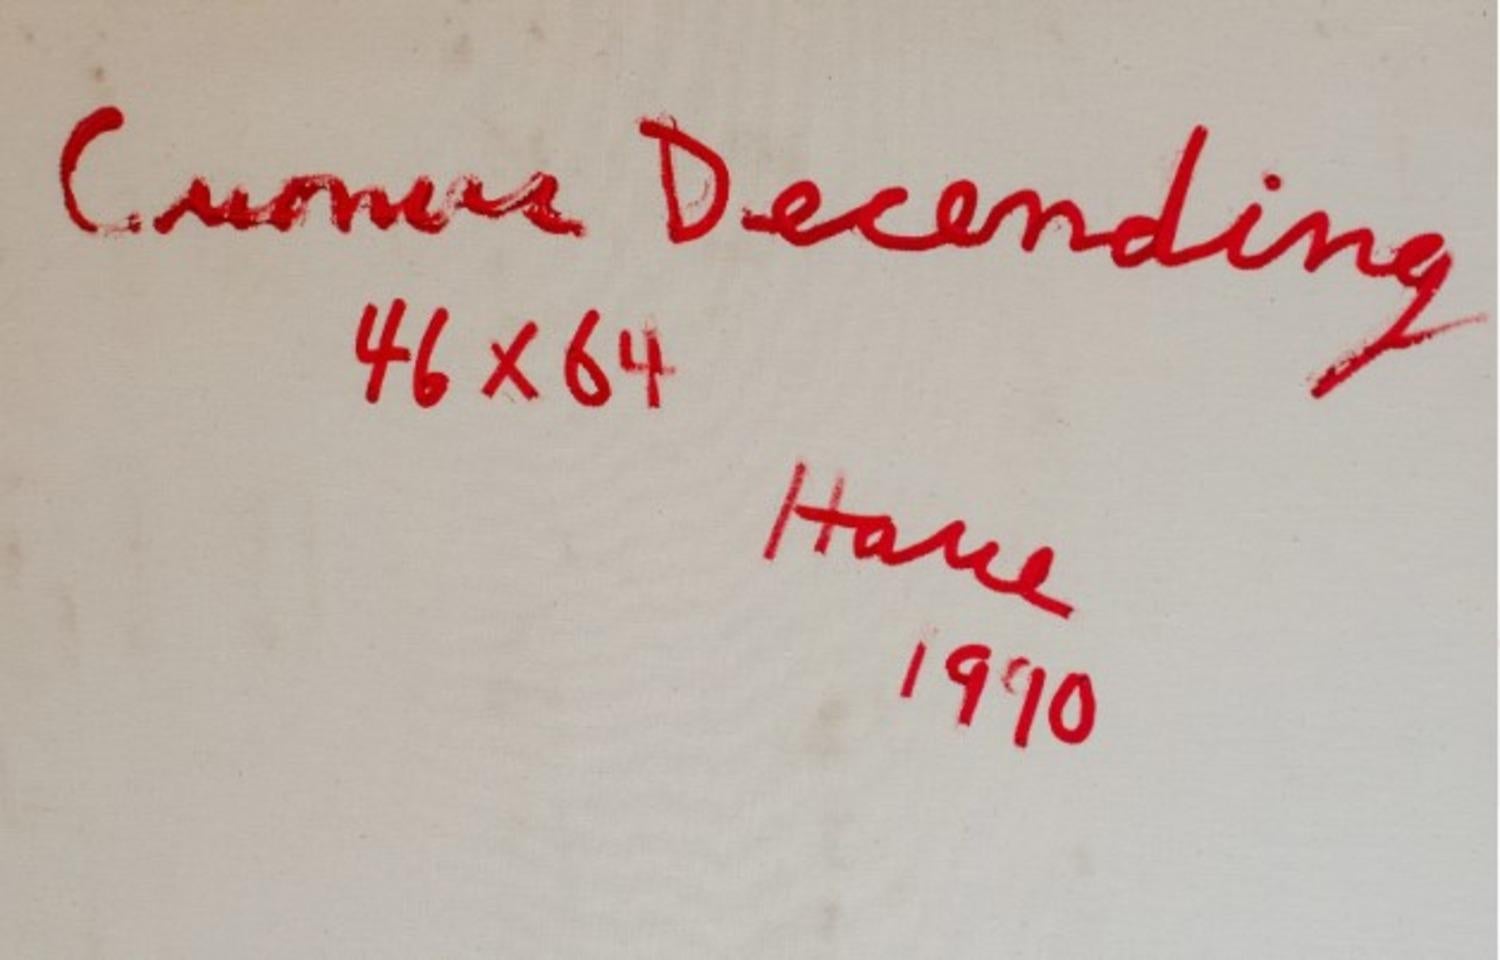 Cronus Decending
46 x 64
Hare
1990